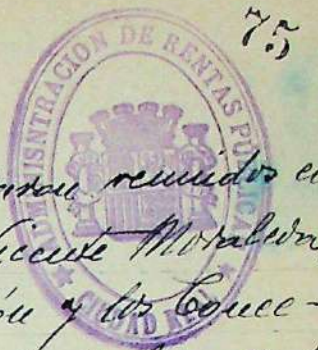 75
ADMINISNTRACION DE RENTAS PUBLICA
CIUDAD REAL
reunidos e
icente Moraleda
ón y los Conce-